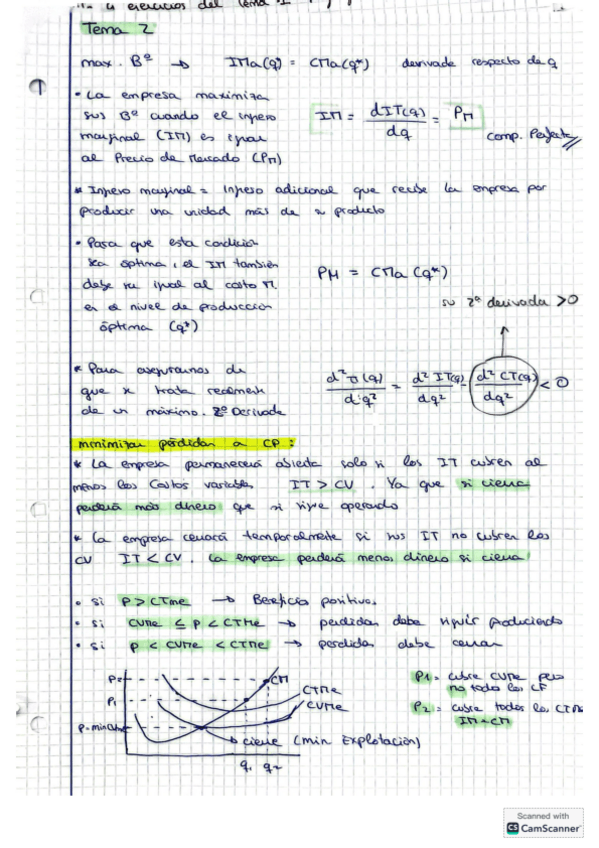 4 ejercicios del Tema 1
Tema 2
max. Bº → IMa(q) = CMa(q*) derivada respecto de q
1
• La empresa maximiza
sus Bº cuando el ingreso
marginal (IM) es igual
al Precio de Mercado (PM)
IM = dIT(q)/dq = PM
comp. Perfecta
* Ingreso marginal = Ingreso adicional que recibe la empresa por
producir una unidad más de su producto
• Para que esta condición
sea óptima, el IM también
debe ser igual al costo M.
en el nivel de producción
óptima (q*)
PM = CMa (q*)
su 2º derivada > 0
* Para asegurarnos de
que se trata realmente
de un máximo. 2º Derivada
d²π(q)/dq² = d²IT(q)/dq² - d²CT(q)/dq² < 0
minimizar pérdidas a CP:
* La empresa permanecerá abierta solo si los IT cubren al
menos los Costos variables IT > CV. Ya que si cierra
perderá más dinero que si sigue operando
* La empresa cerrará temporalmente si sus IT no cubren los
CV IT < CV. La empresa perderá menos dinero si cierra
• si P > CTMe → Beneficios positivos
• si CVMe ≤ P < CTMe → perdidas debe seguir produciendo
• si P < CVMe < CTMe → perdidas debe cerrar
P2
P1
P = min CVMe
CM
CTMe
CVMe
cierre (min Explotación)
q1 q2
P1 = cubre CVMe pero
no todos los CF
P2 = cubre todos los CTMe
IM = CM
Scanned with
CS CamScanner